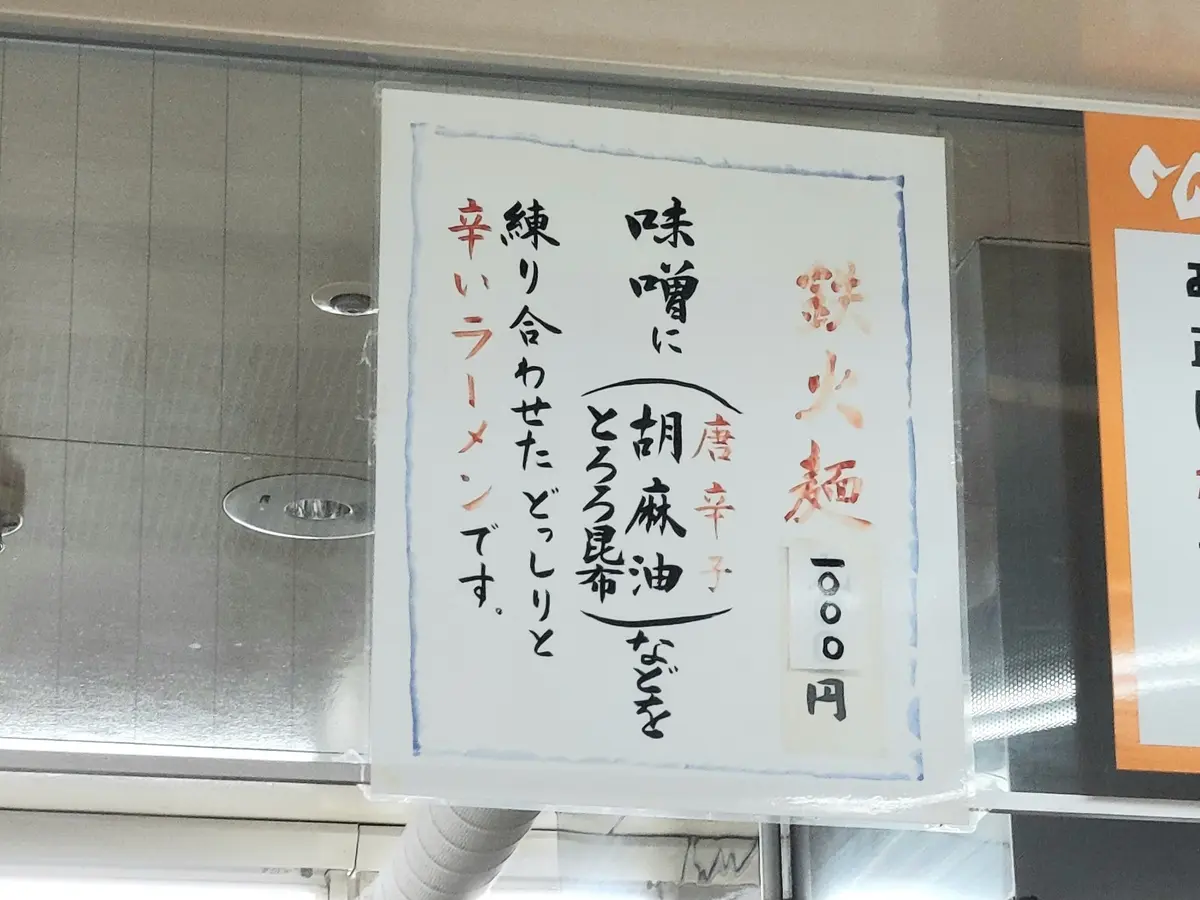 鉄火麺 一〇〇〇円
味噌に
唐辛子
胡麻油
とろろ昆布
などを
練り合わせたどっしりと
辛いラーメンです。